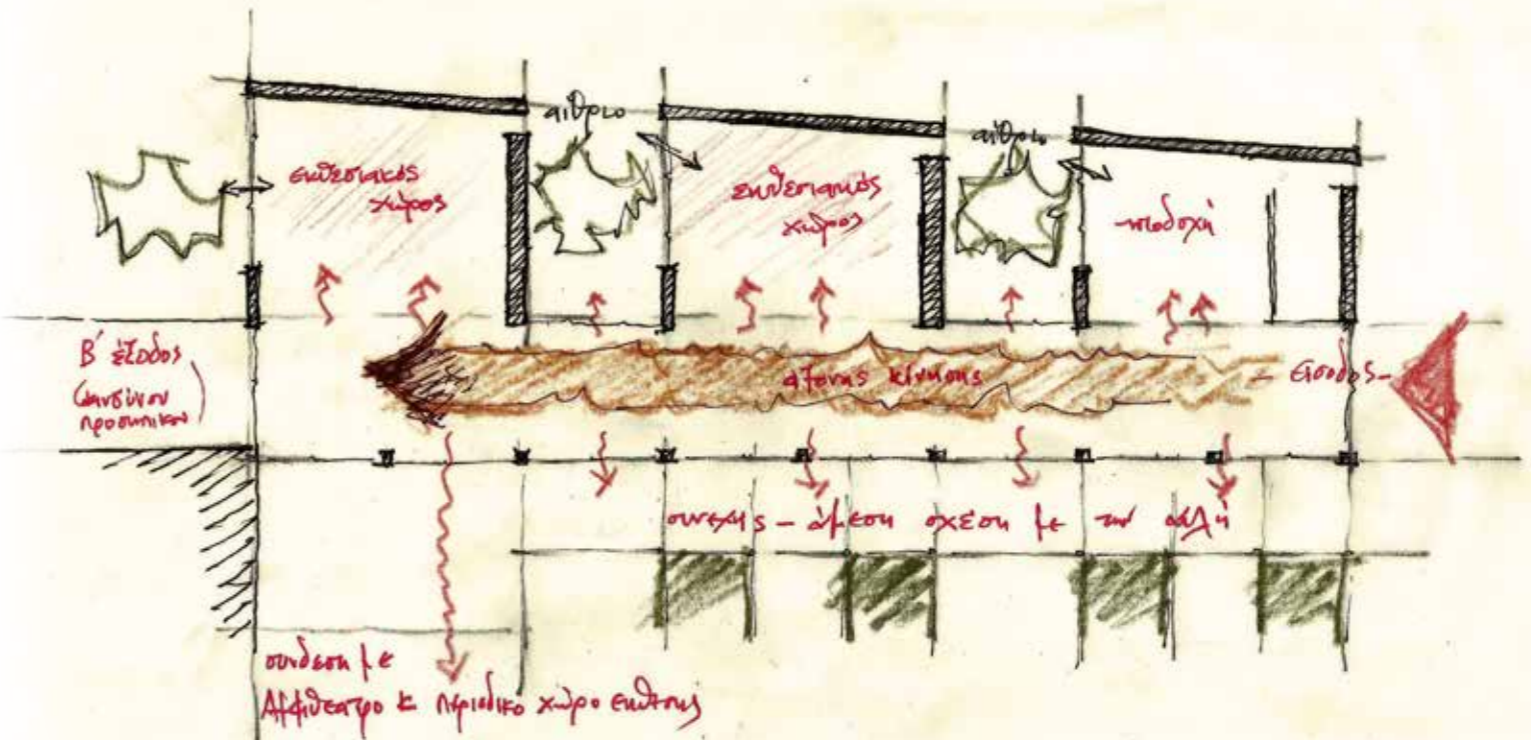 αίθριο
αίθριο
εκθεσιακός
χώρος
εκθεσιακός
χώρος
υποδοχή
Β' έξοδος
προσωπικού
άξονας κίνησης
- είσοδος -
συνεχής - άμεση σχέση με την αυλή
σύνδεση με
Αμφιθέατρο κ περιοδικό χώρο έκθεσης